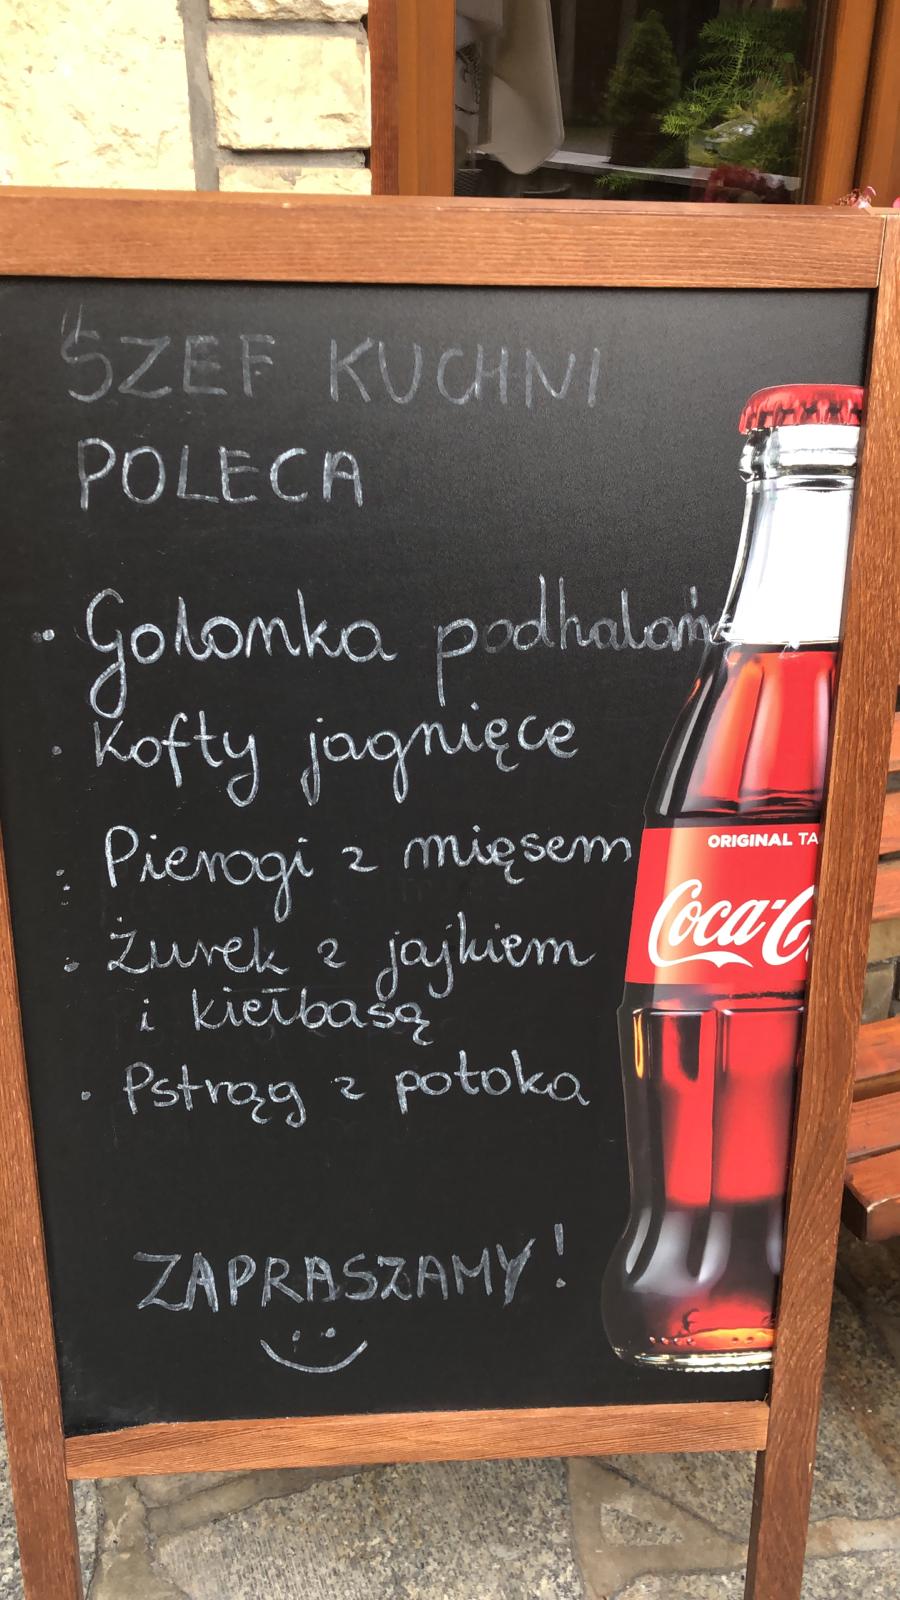 SZEF KUCHNI
POLECA
• Golonka podhalańs
• Kofty jagnięce
• Pierogi z mięsem
• Żurek z jajkiem
i kiełbasą
• Pstrąg z potoka
ZAPRASZAMY!
ORIGINAL TA
Coca-C